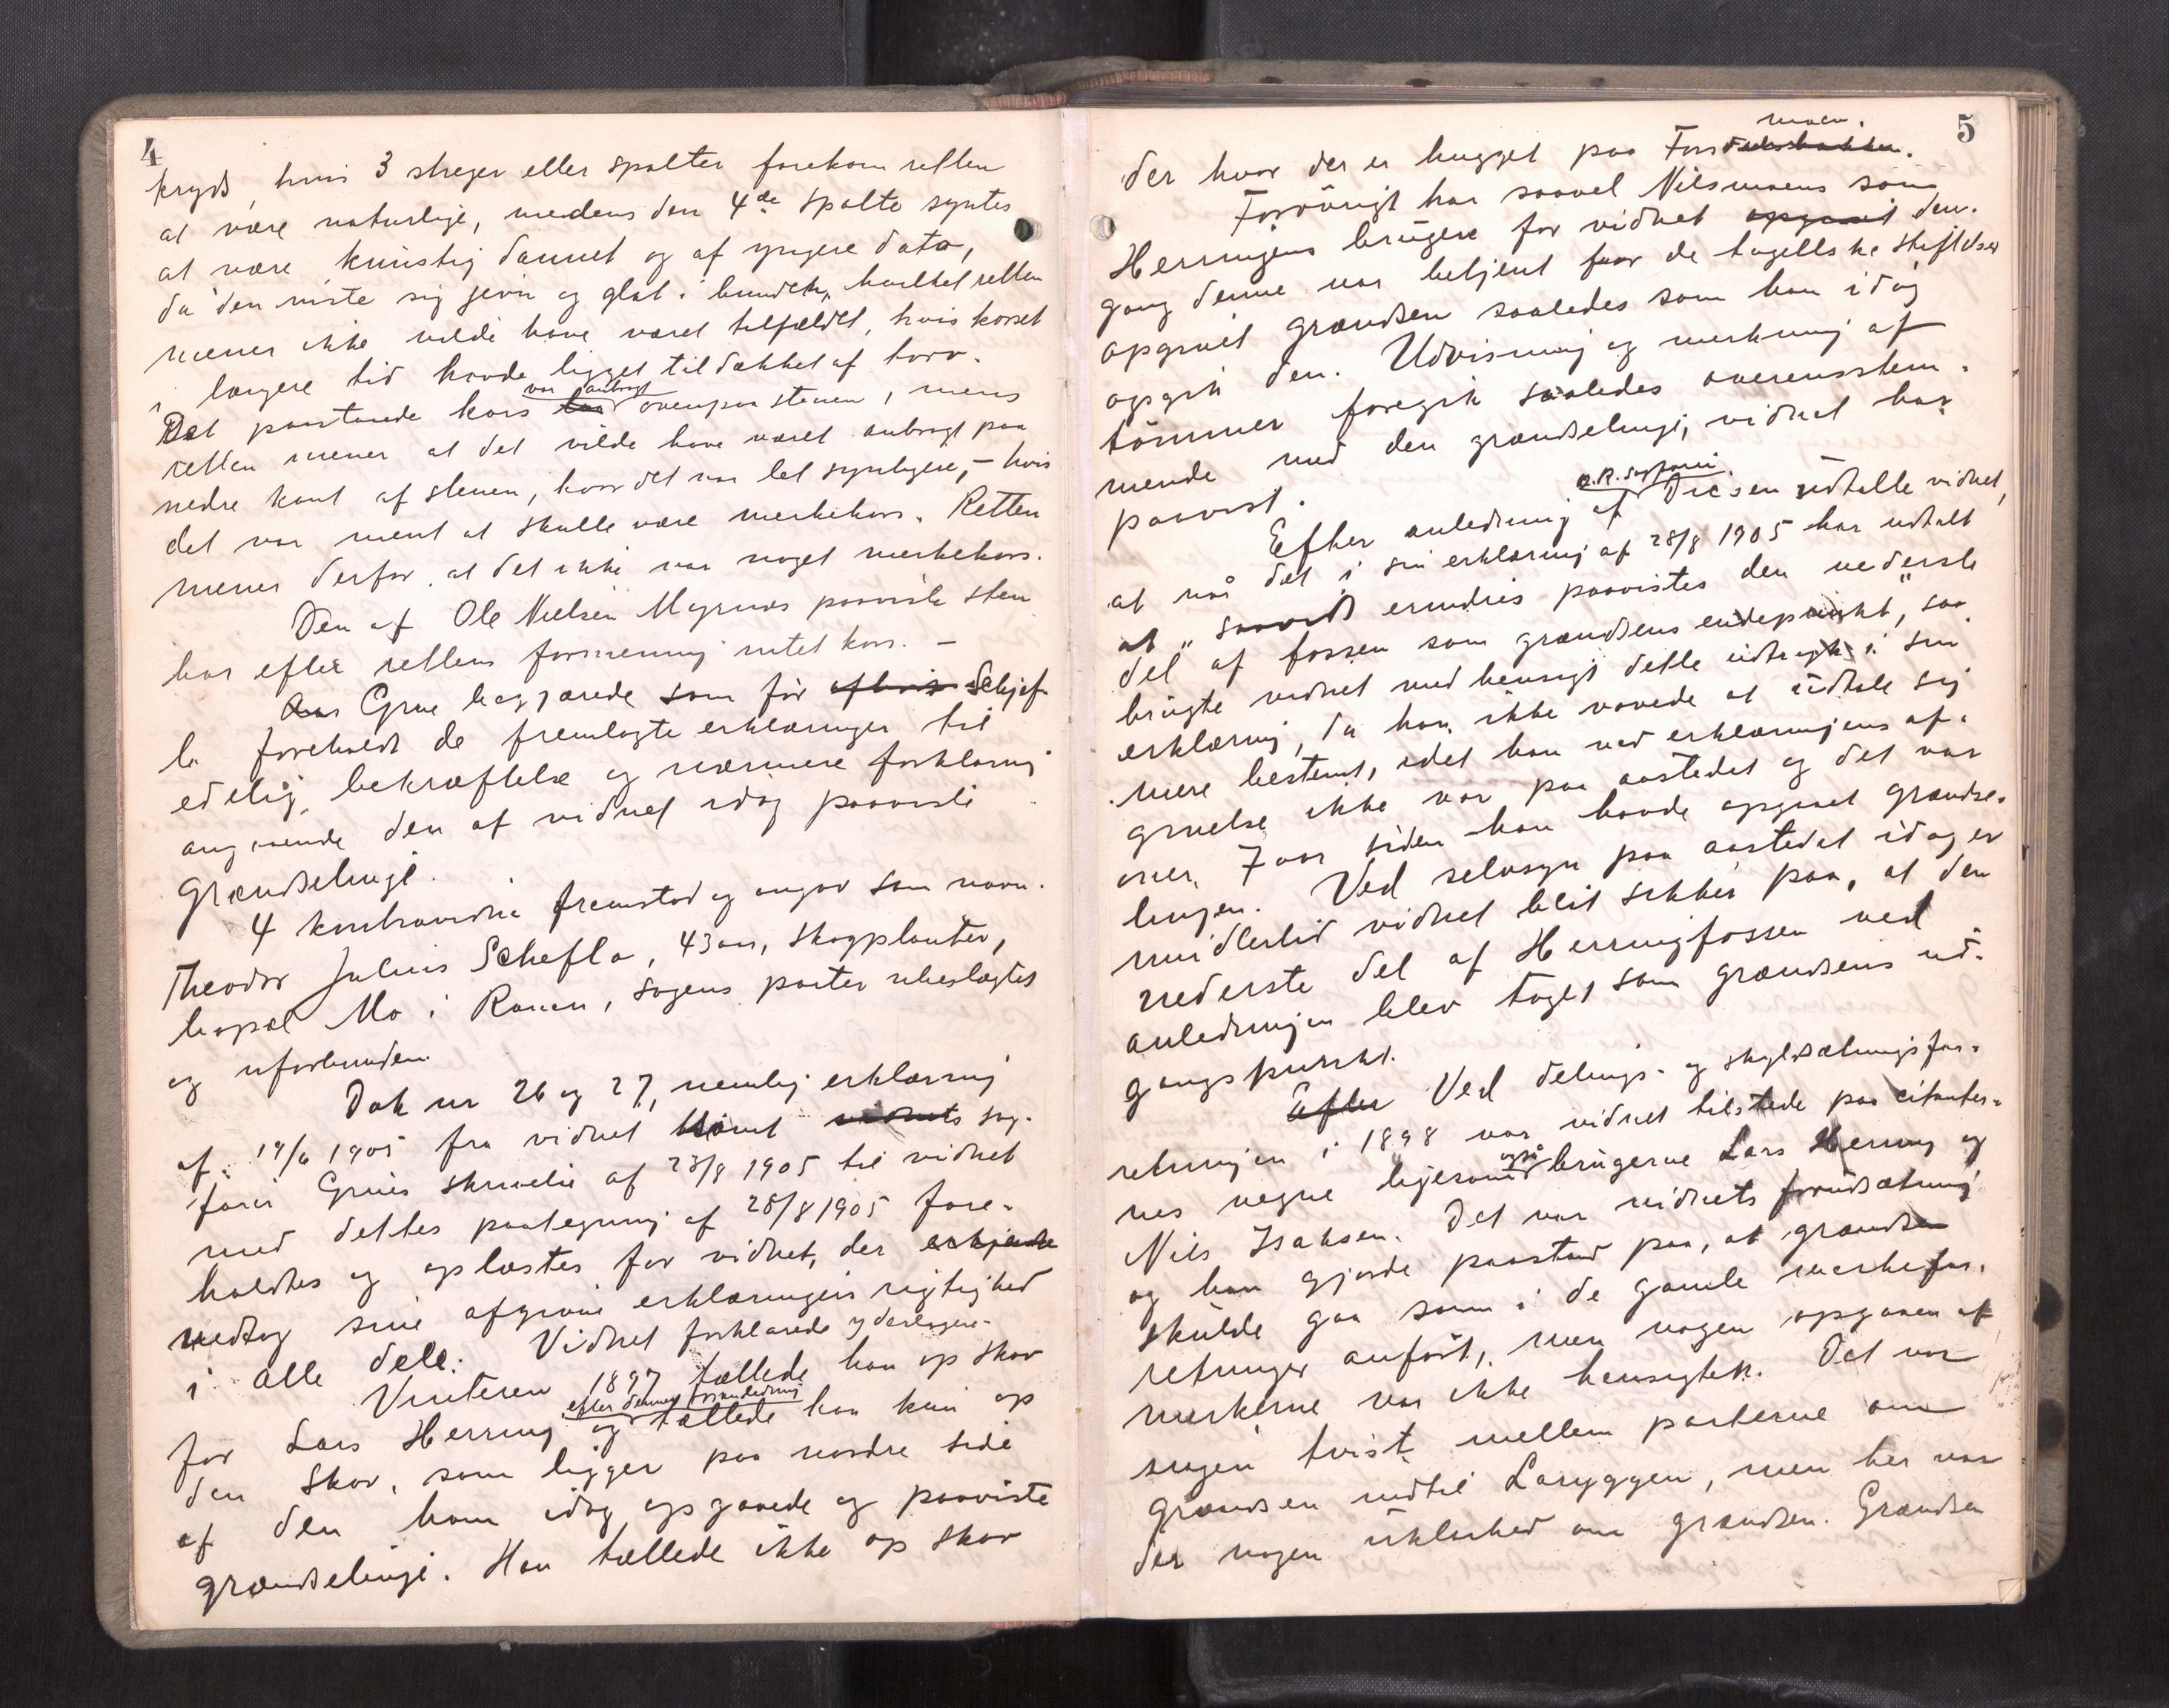 4
kryds, hvis 3 streger eller spalter forekom retten
at være naturlige, medens den 4de spalte syntes
at være kunstig dannet og af yngere dato,
da den viste sig jevn og glat i bunden, hvilket retten
mener ikke vilde have været tilfældet, hvis korset
i længere tid havde ligget tildækket af torv.
Det paastaaede kors laa var anbragt ovenpaa stenen, mens
retten mener at det vilde have været anbragt paa
nedre kant af stenen, hvor det var let synligere, – hvis
det var ment at skulle være merkekors. Retten
mener derfor, at det ikke var noget merkekors.
Den af Ole Nielsen Myrnes paaviste sten
har efter rettens formening intet kors. –
Grue begjærede som før Schjef-
la foreholdt de fremlagte erklæringer til
edelig bekræftelse og nærmere forklaring
angaaende den af vidnet idag paaviste
grændselinje.
4 kontravidne fremstod og angav som navn.
Theodor Julius Schefla, 43 aar, skogplanter,
bopæl Mo i Ranen, sagens parter ubeslægtet
og uforbunden.
Dok nr 26 og 27, nemlig erklæring
af 19/6 1905 fra vidnet samt vidnets sag-
fører Grues skrivelse af 23/8 1905 til vidnet
med dettes paategning af 28/8 1905 fore-
holdtes og oplæstes for vidnet, der erkjendte
vedtog sine afgivne erklæringers rigtighed
i alle dele. Vidnet forklarede yderligere.
Vinteren 1897 tællede han op skov
for Lars Herring og efter dennes foranledning tællede han kun op
den skov, som ligger paa nordre side
af den ham idag opgaaede og paaviste
grændselinje. Han tællede ikke op skov
5
der hvor der er hugget paa Fors moen.
Forøvrigt har saavel Nilsmoens som
Herringens brugere for vidnet opgaaet den-
gang denne var betjent for de togellske skiftelser
opgaaet grændsen saaledes som han idag
opgik den. Udvisning og merkning af
tømmer foregik saaledes overensstem-
mende med den grændselinje, vidnet har
paavist.
Efter anledning af O.R. sagfører udtalte vidnet,
at naar det i sin erklæring af 28/8 1905 har udtalt
at "saavidt erindres paavistes den nederste
del af fossen som grændsens endepunkt", saa
brugte vidnet med hensigt dette udtryk i sin
erklæring, da han ikke vovede at udtale sig
mere bestemt, idet han ved erklæringens af-
givelse ikke var paa aastedet og det var
over 7 aar siden han havde opgaaet grændse-
linjen. Ved selvsyn paa aastedet idag er
imidlertid vidnet blit sikker paa, at den
nederste del af Herringfossen ved
anledningen blev taget som grændsens ud-
gangspunkt.
Efter Ved delings- og skyldsætningsfor-
retningen i 1898 var vidnet tilstede paa citanter-
nes vegne ligesom også brugerne Lars Herring og
Nils Isaksen. Det var vidnets forudsætning
og han gjorde paastand paa, at grændsen
skulde gaa som i de gamle merkefor-
retninger anført, men nogen opgaaen af
merkerne var ikke hensigten. Det var
ingen tvist mellem parterne om
grændsen indtil Laryggen, men her var
der nogen uklarhed om grændsen. Grændsen